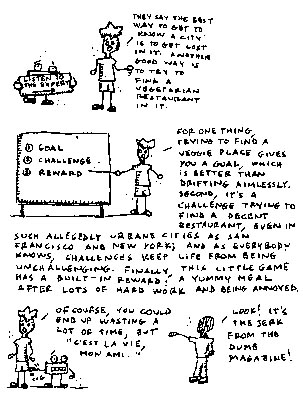 THEY SAY THE BEST
WAY TO GET TO
KNOW A CITY
IS TO GET LOST
IN IT. ANOTHER
GOOD WAY IS
TO TRY TO
FIND A
VEGETARIAN
RESTAURANT
IN IT.
LISTEN TO
THE EXPERT!
① GOAL
② CHALLENGE
③ REWARD
FOR ONE THING,
TRYING TO FIND A
VEGGIE PLACE GIVES
YOU A GOAL, WHICH
IS BETTER THAN
DRIFTING AIMLESSLY.
SECOND, IT'S A
CHALLENGE TRYING TO
FIND A DECENT
RESTAURANT, EVEN IN
SUCH ALLEGEDLY URBANE CITIES AS SAN
FRANCISCO AND NEW YORK; AND AS EVERYBODY
KNOWS, CHALLENGES KEEP LIFE FROM BEING
UNCHALLENGING. FINALLY, THIS LITTLE GAME
HAS A BUILT-IN REWARD: A YUMMY MEAL
AFTER LOTS OF HARD WORK AND BEING ANNOYED.
OF COURSE, YOU COULD
END UP WASTING A
LOT OF TIME, BUT
"C'EST LA VIE,
MON AMI."
LOOK! IT'S
THE JERK
FROM THE
DUMB
MAGAZINE!